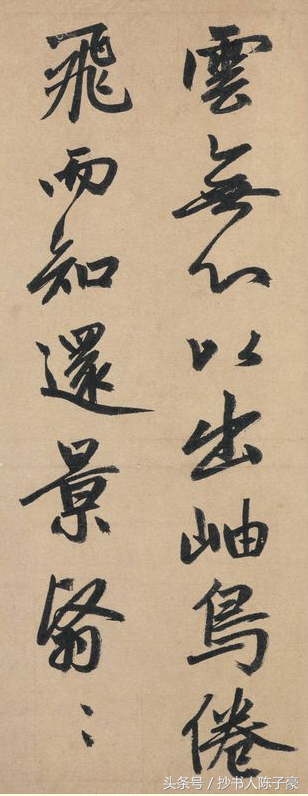 雲無心以出岫鳥倦
飛而知還景翳〻
头条号／抄书人陈子豪